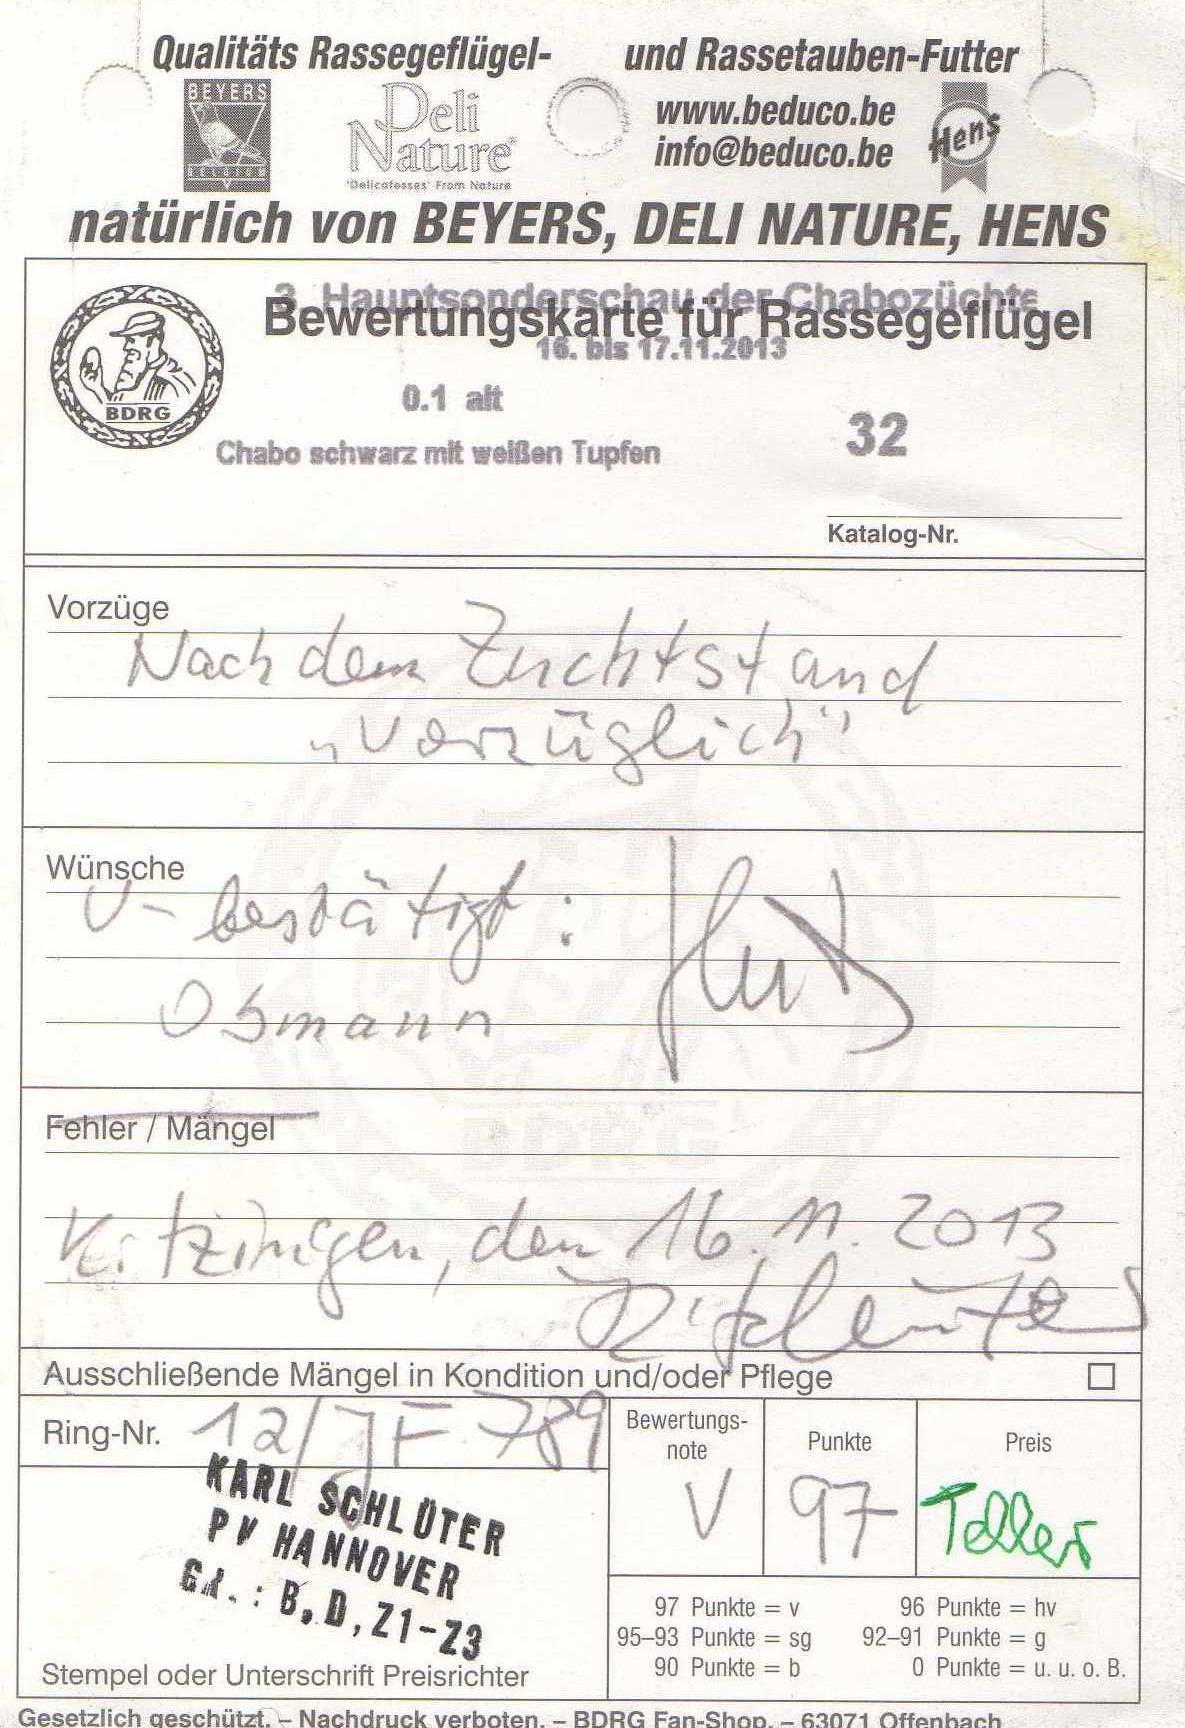 Qualitäts Rassegeflügel- und Rassetauben-Futter
BEYERS
BELGIUM
Deli
Nature®
'Delicatesses' From Nature
www.beduco.be
info@beduco.be
Hens
natürlich von BEYERS, DELI NATURE, HENS
3. Hauptsonderschau der Chabozüchte
Bewertungskarte für Rassegeflügel
16. bis 17.11.2013
BDRG
0.1 alt
32
Chabo schwarz mit weißen Tupfen
Katalog-Nr.
Vorzüge
Nach dem Zuchtstand
„Vorzüglich"
Wünsche
V-bestätigt:
Oßmann
BDRG
Fehler / Mängel
Kitzingen, den 16.11.2013
Ausschließende Mängel in Kondition und/oder Pflege
Ring-Nr. 12/JF 789
Bewertungs-
note
Punkte
Preis
V
97
Teller
KARL SCHLÜTER
PV HANNOVER
Gr.: B, D, Z1-Z3
Stempel oder Unterschrift Preisrichter
97 Punkte = v 96 Punkte = hv
95–93 Punkte = sg 92–91 Punkte = g
90 Punkte = b 0 Punkte = u. u. o. B.
Gesetzlich geschützt. – Nachdruck verboten. – BDRG Fan-Shop. – 63071 Offenbach